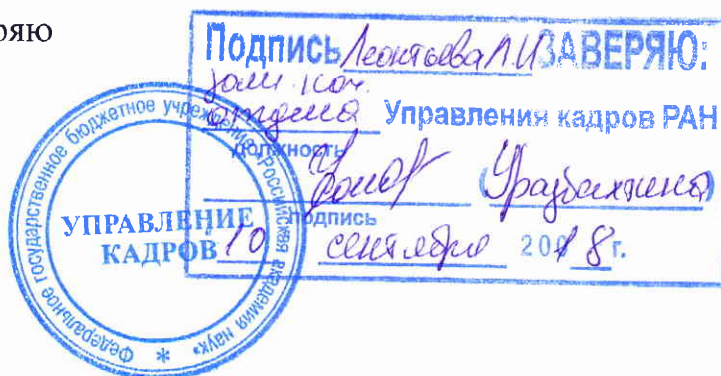 ряю
Подпись Леонтьева Л.И ЗАВЕРЯЮ:
зам. нач.
отдела Управления кадров РАН
должность
(Уразбахтина)
подпись
10 сентября 2018 г.
Федеральное государственное бюджетное учреждение «Российская академия наук» *
УПРАВЛЕНИЕ
КАДРОВ